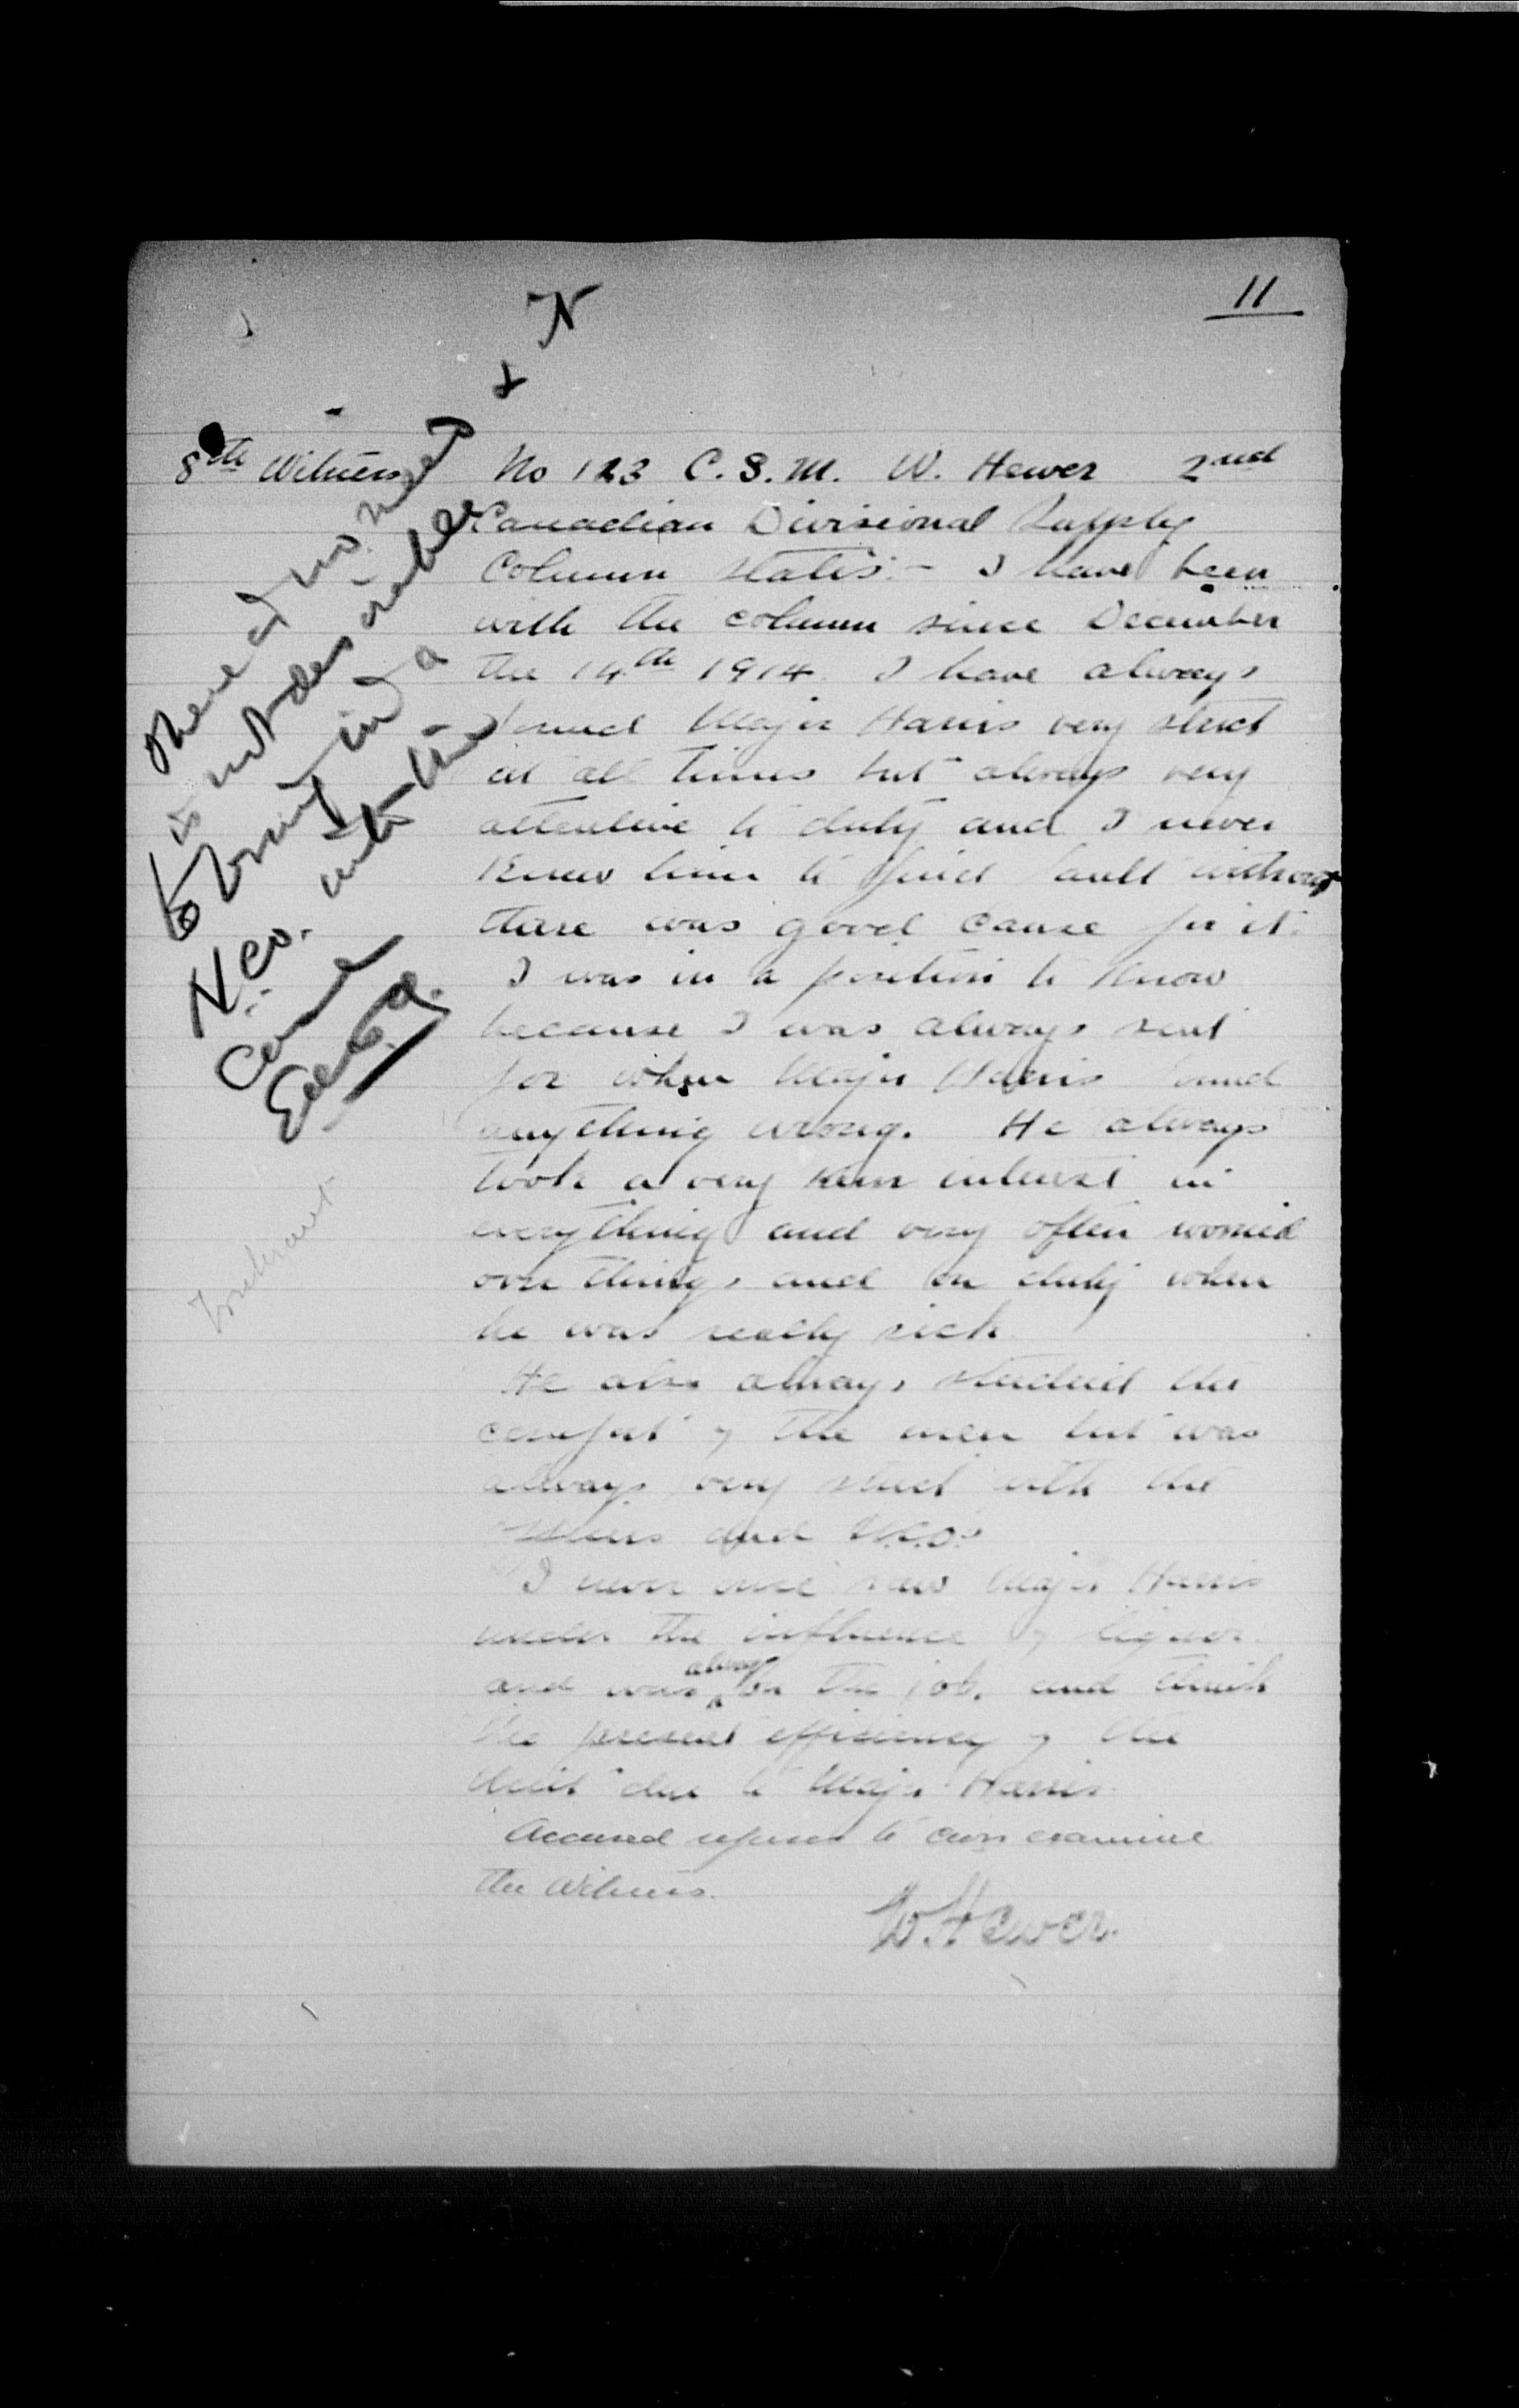 11
8th Witness No 123 C.S.M. W. Hewer 2nd
Canadian Divisional Supply
Column states:- I have been
with the column since December
the 14th 1914. I have always
found Major Harris very strict
at all times but always very
attentive to duty and I never
knew him to find fault without
there was good cause for it.
I was in a position to know
because I was always sent
for when Major Harris found
anything wrong. He always
took a very keen interest in
everything and very often worried
over things and on duty when
he was really sick.
He also always studied the
comfort of the men but was
always very strict with the
Officers and N.C.O.s
I never once saw Major Harris
under the influence of liquor.
and was always on the job. and think
the present efficiency of the
Unit due to Major Harris.
Accused refuses to cross examine
the Witness.
W. Hewer.
& N
There is no need
is not desirable
to bring in a
N.C.O. into this